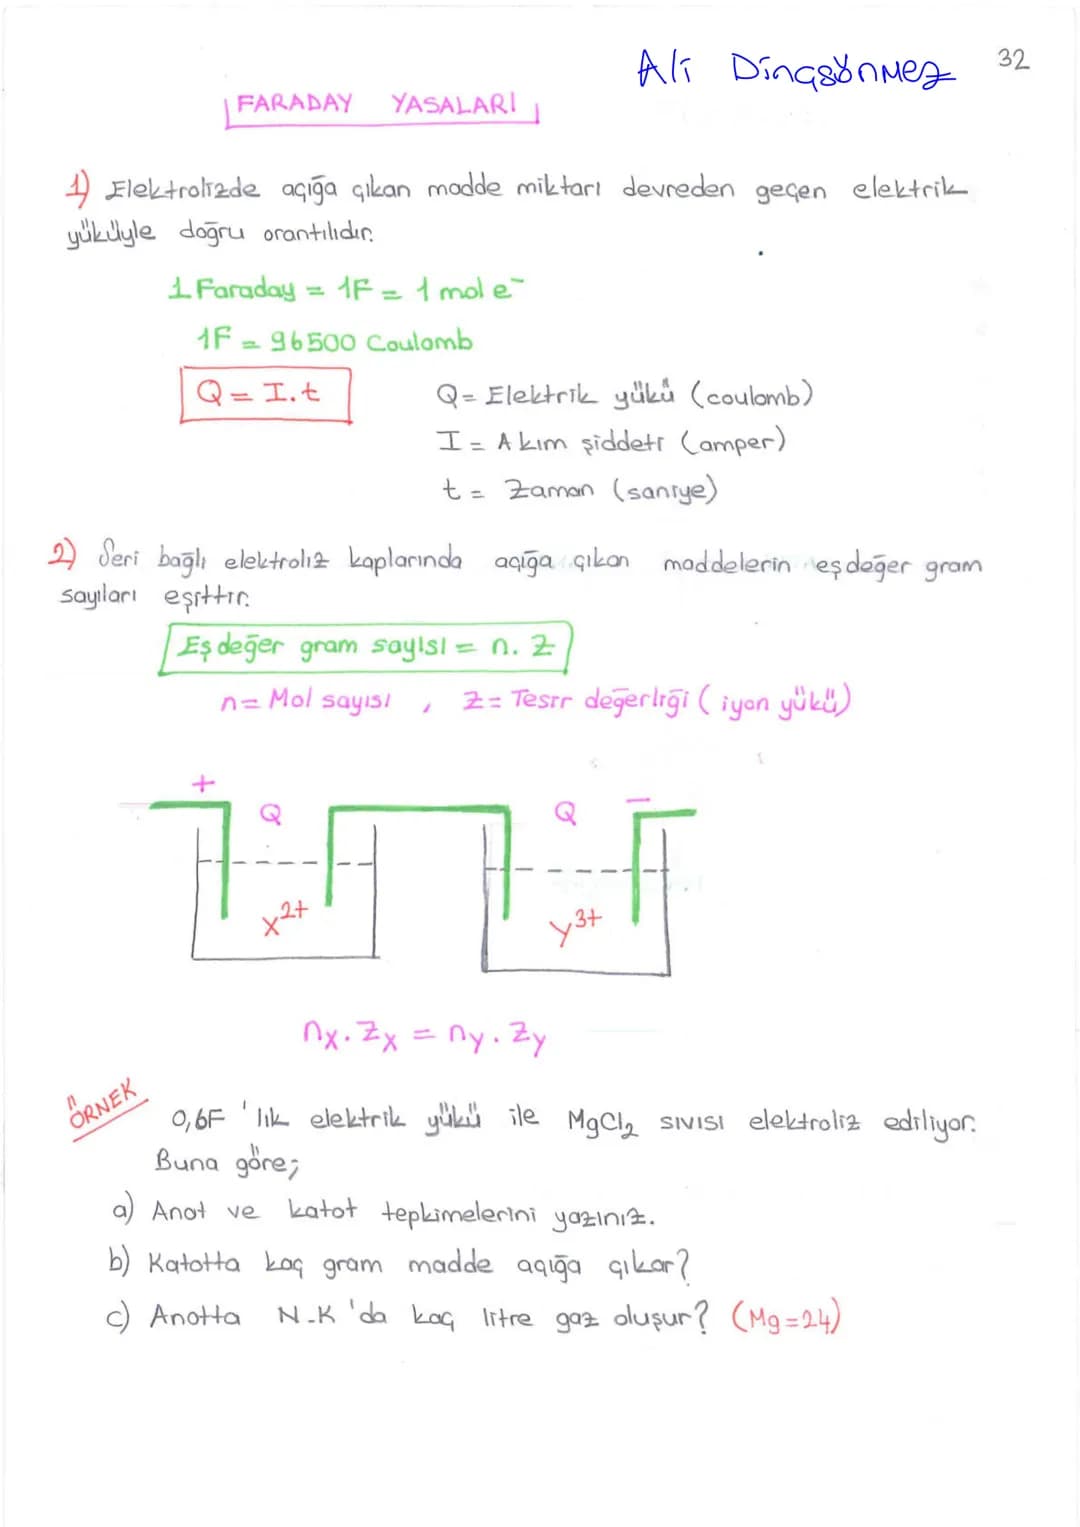 Ali Dinçsönmez 32
FARADAY YASALARI
1) Elektrolizde açığa çıkan madde miktarı devreden geçen elektrik
yüküyle doğru orantılıdır.
1 Faraday = 1F = 1 mol e⁻
1F = 96500 Coulomb
Q = I.t
Q = Elektrik yükü (coulomb)
I = Akım şiddeti (amper)
t = Zaman (saniye)
2) Seri bağlı elektroliz kaplarında açığa çıkan maddelerin eşdeğer gram
sayıları eşittir.
Eşdeğer gram sayısı = n. Z
n = Mol sayısı , Z = Tesir değerliği ( iyon yükü)
+ Q Q -
X²⁺ Y³⁺
nₓ. Zₓ = nᵧ. Zᵧ
ÖRNEK
0,6F 'lık elektrik yükü ile MgCl₂ sıvısı elektroliz ediliyor.
Buna göre;
a) Anot ve katot tepkimelerini yazınız.
b) Katotta kaç gram madde açığa çıkar?
c) Anotta N.K'da kaç litre gaz oluşur? (Mg=24)